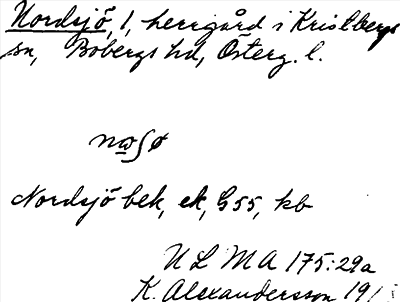 Nordsjö, 1, herrgård i Kristbergs
sn, Bobergs hd, Österg. l.
Nordsjö bek, ek, G55, kb
ULMA 175:29a
K. Alexandersson 191